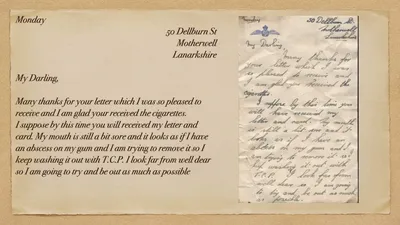 Monday
50 Dellburn St
Motherwell
Lanarkshire
My Darling,
Many thanks for your letter which I was so pleased to
receive and I am glad your received the cigarettes.
I suppose by this time you will received my letter and
card. My mouth is still a bit sore and it looks as if I have
an abscess on my gum and I am trying to remove it so I
keep washing it out with T.C.P. I look far from well dear
so I am going to try and be out as much as possible
Monday
50 Dellburn St.
Motherwell
Lanarkshire
My Darling,
many thanks for
your letter which I was
so pleased to receive and
I am glad you received the
cigarettes.
I suppose by this time you
will have received my
letter and card. My mouth
is still a bit sore and it
looks as if I have an
abscess on my gum and I
am trying to remove it so
I keep washing it out with
T.C.P. I look far from
well dear so I am going
to try and be out as much
as possible.